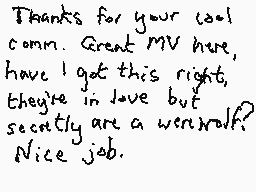 Thanks for your cool
comm. Great MV here,
have I got this right,
they're in love but
secretly are a werewolf?
Nice job.